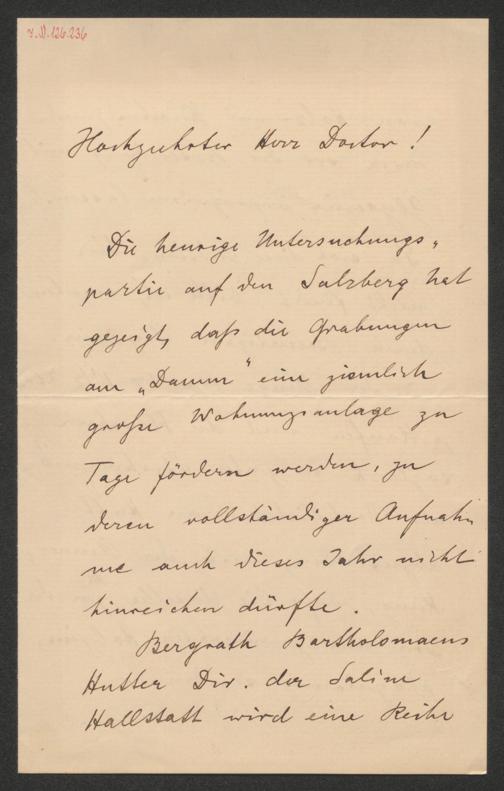 Hochgeehrter Herr Doctor!
Die heurige Untersuchungs-
partie auf den Salzberg hat
gezeigt, daß die Grabungen
am „Damm“ eine ziemlich
große Wohnungsanlage zu
Tage fördern werden, zu
deren vollständiger Aufnah-
me auch dieses Jahr nicht
hinreichen dürfte.
Bergrath Bartholomaeus
Hutter Dir. der Saline
Hallstatt wird eine Reihe